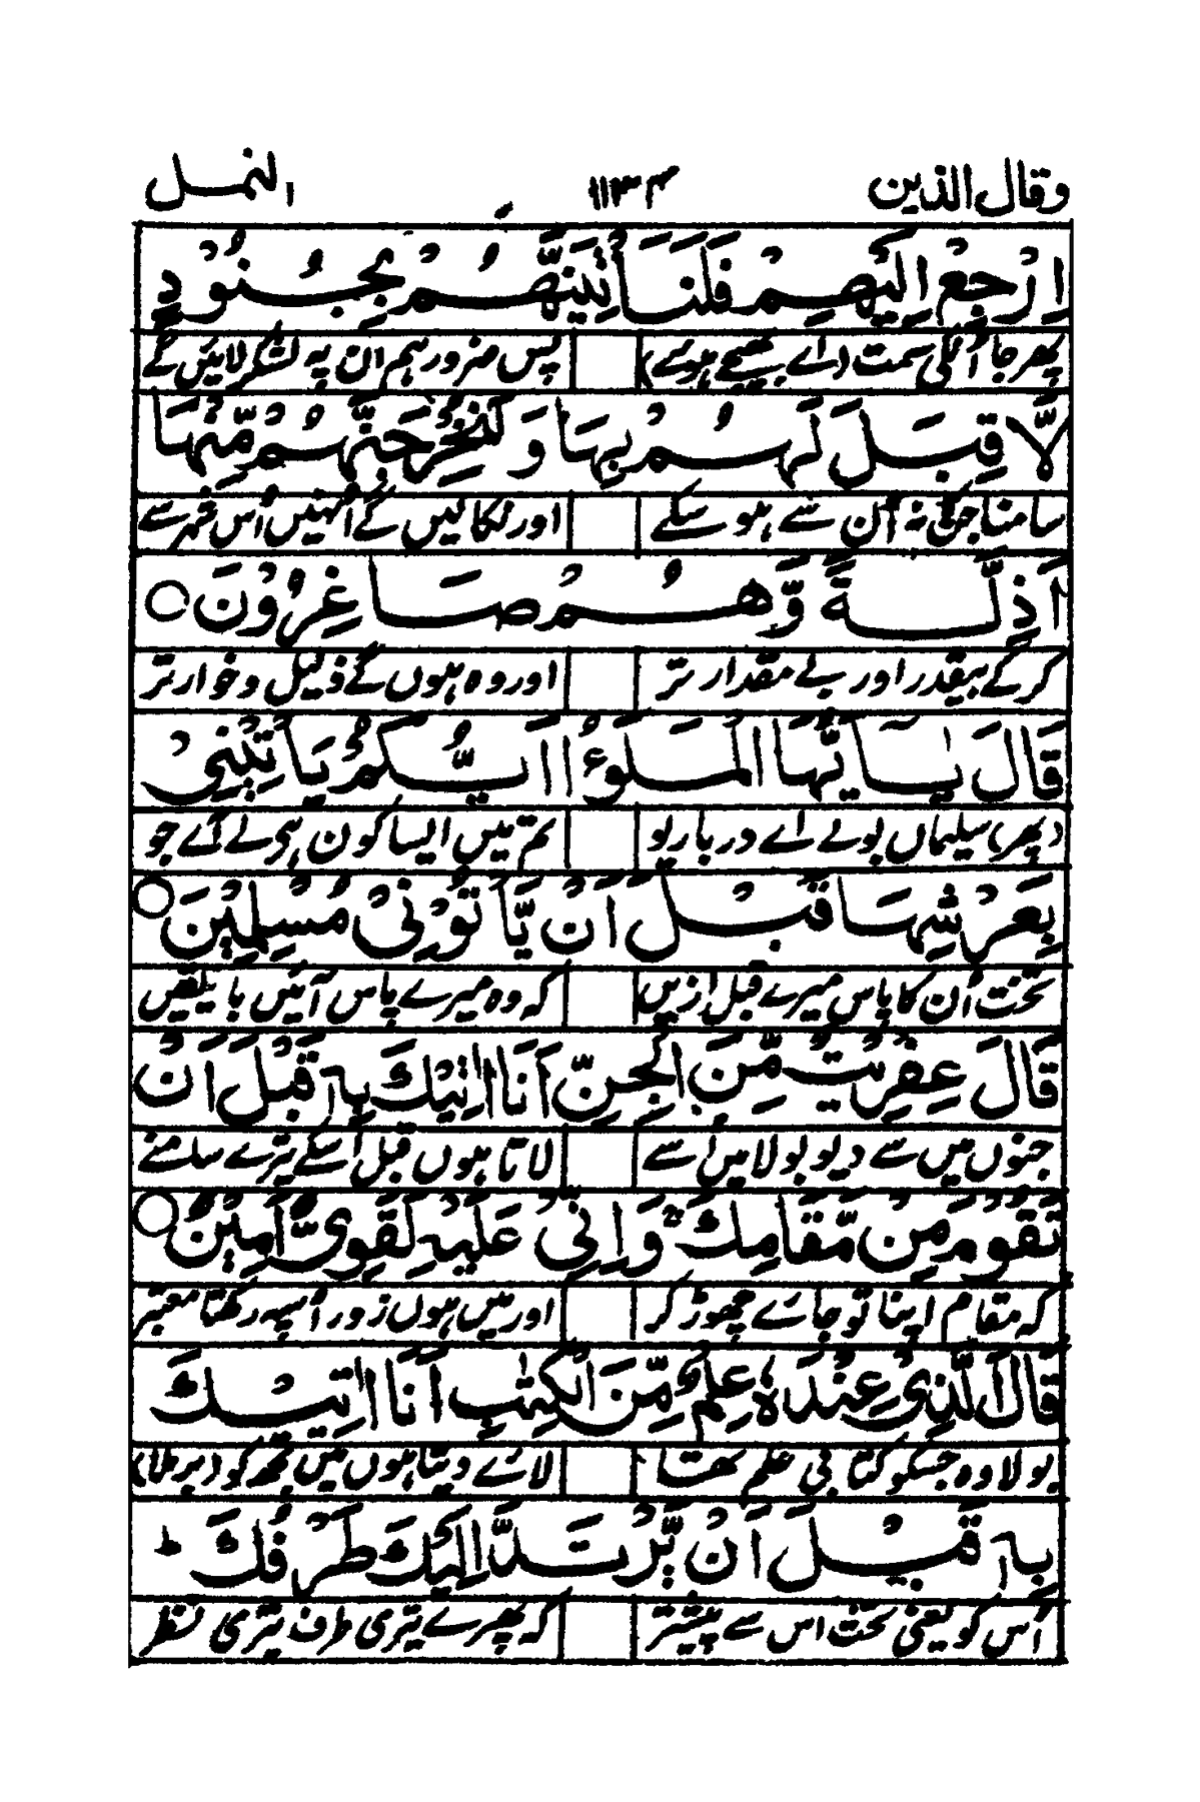 وقال الذین ۱۱۳۴ النمل
اِرْجِعْ اِلَیْهِمْ فَلَنَاْتِیَنَّهُمْ بِجُنُوْدٍ
پھر جا اُنکی سمت (اے بھیجے ہوئے) پس ضرور ہم ان پہ لشکر لائیں گے
لَّا قِبَلَ لَهُمْ بِهَا وَ لَنُخْرِجَنَّهُمْ مِّنْهَا
سامنا جنکا نہ اُن سے ہو سکے اور نکالیں گے اُنہیں اُس شہر سے
اَذِلَّةً وَّ هُمْ صَاغِرُوْنَ ○
کر کے بیقدر اور بے مقدار تر اور وہ ہوں گے ذلیل و خوار تر
قَالَ یٰۤاَیُّهَا الْمَلَؤُا اَیُّكُمْ یَاْتِیْنِیْ
(پھر) سلیماں بولے اے دربار یو تم میں ایسا کون ہی لے آئے جو
بِعَرْشِهَا قَبْلَ اَنْ یَّاْتُوْنِیْ مُسْلِمِیْنَ ○
تخت اُن کا پاس میرے قبل ازیں کہ وہ میرے پاس آئیں با یقیں
قَالَ عِفْرِیْتٌ مِّنَ الْجِنِّ اَنَا اٰتِیْكَ بِهٖ قَبْلَ اَنْ
جنوں میں سے دیو بولا میں اُسے لاتا ہوں قبل اسکے تیرے سامنے
تَقُوْمَ مِنْ مَّقَامِكَ ۚ وَ اِنِّیْ عَلَیْهِ لَقَوِیٌّ اَمِیْنٌ ○
کہ مقام اپنا تو جائے چھوڑ کر اور میں ہوں زور اُسپہ رکھتا معتبر
قَالَ الَّذِیْ عِنْدَهٗ عِلْمٌ مِّنَ الْكِتٰبِ اَنَا اٰتِیْكَ
بولا وہ جسکو کتابی علم تھا لائے دیتا ہوں میں تجھ کو (برملا)
بِهٖ قَبْلَ اَنْ یَّرْتَدَّ اِلَیْكَ طَرْفُكَ ؕ
اُس کو یعنی تخت اس سے پیشتر کہ پھرے تیری طرف تیری نظر